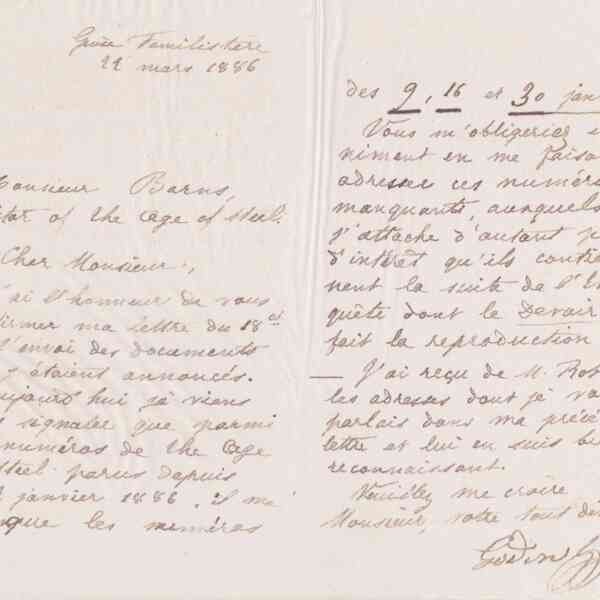 Guise Familistère
22 mars 1886
Monsieur Barns,
of the Age of Steel.
Cher Monsieur,
J'ai l'honneur de vous
firmer ma lettre du 18 ct
l'envoi des documents
s étaient annoncés.
ujourd'hui je viens
signaler que parmi
numéros de the Age
Steel parus depuis
janvier 1886, il me
nque les numéros
des 9, 16 et 30 jan
Vous m'obligeriez
niment en me faisa
adresser ces numéro
manquants, auxquels
j'attache d'autant p
d'intérêt qu'ils contie
nent la suite de l'En
quête dont le Devoir
fait la reproduction
— J'ai reçu de M. Rob
les adresses dont je vo
parlais dans ma précé
lettre et lui en suis bi
reconnaissant.
Veuillez me croire
Monsieur, votre tout dé
Godin